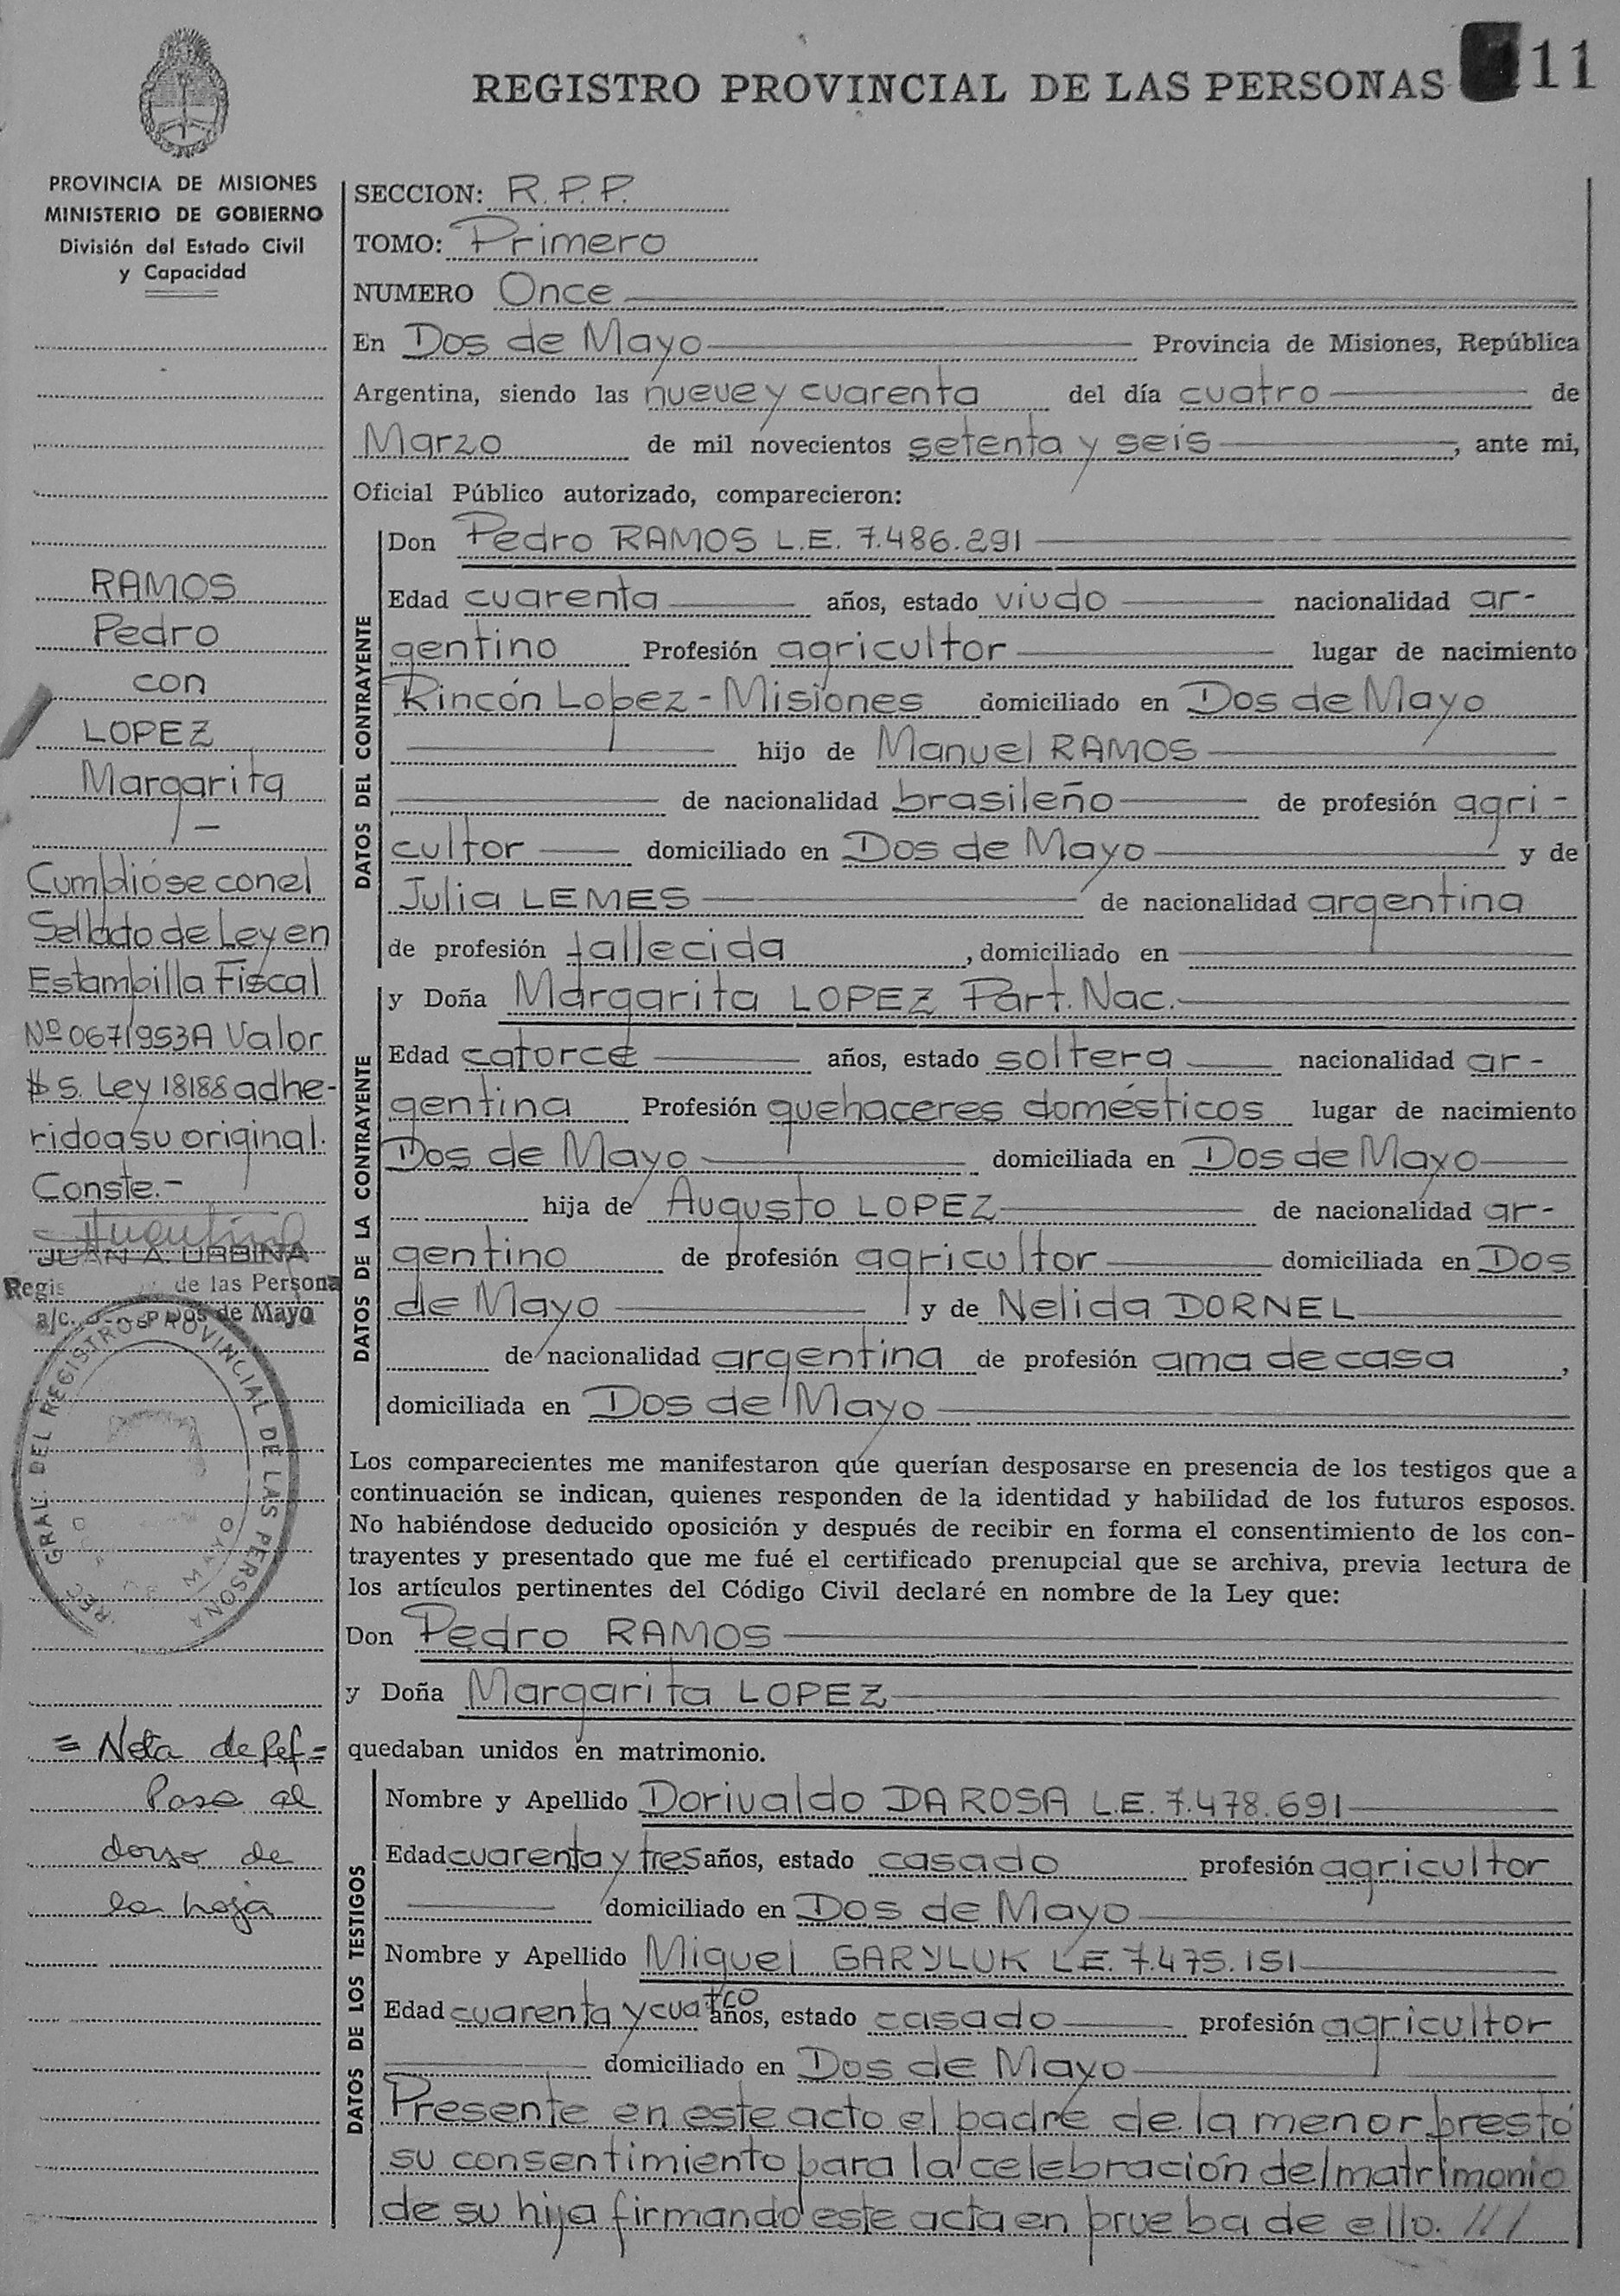 REGISTRO PROVINCIAL DE LAS PERSONAS 11
PROVINCIA DE MISIONES
MINISTERIO DE GOBIERNO
División del Estado Civil
y Capacidad
RAMOS
Pedro
con
LOPEZ
Margarita
Cumplióse con el
Sellado de Ley en
Estampilla Fiscal
Nº 0671953A Valor
$ 5. Ley 18188 adhe-
rido a su original.
Conste.-
JUAN A. URBINA
Regis de las Persona
a/c. Dos de Mayo
GRAL. DEL REGISTRO PROVINCIAL DE LAS PERSONA
DOS DE MAYO
= Nota de Ref =
Pasa al
dorso de
la hoja
SECCION: R.P.P.
TOMO: Primero
NUMERO Once
En Dos de Mayo Provincia de Misiones, República
Argentina, siendo las nueve y cuarenta del día cuatro de
Marzo de mil novecientos setenta y seis, ante mi,
Oficial Público autorizado, comparecieron:
DATOS DEL CONTRAYENTE
Don Pedro RAMOS L.E. 7.486.291
Edad cuarenta años, estado viudo nacionalidad ar-
gentino Profesión agricultor lugar de nacimiento
Rincón Lopez - Misiones domiciliado en Dos de Mayo
hijo de Manuel RAMOS
de nacionalidad brasileño de profesión agri-
cultor domiciliado en Dos de Mayo y de
Julia LEMES de nacionalidad argentina
de profesión fallecida, domiciliado en
DATOS DE LA CONTRAYENTE
y Doña Margarita LOPEZ Part. Nac.
Edad catorce años, estado soltera nacionalidad ar-
gentina Profesión quehaceres domésticos lugar de nacimiento
Dos de Mayo domiciliada en Dos de Mayo
hija de Augusto LOPEZ de nacionalidad ar-
gentino de profesión agricultor domiciliada en Dos
de Mayo y de Nelida DORNEL
de nacionalidad argentina de profesión ama de casa,
domiciliada en Dos de Mayo
Los comparecientes me manifestaron que querían desposarse en presencia de los testigos que a
continuación se indican, quienes responden de la identidad y habilidad de los futuros esposos.
No habiéndose deducido oposición y después de recibir en forma el consentimiento de los con-
trayentes y presentado que me fué el certificado prenupcial que se archiva, previa lectura de
los artículos pertinentes del Código Civil declaré en nombre de la Ley que:
Don Pedro RAMOS
y Doña Margarita LOPEZ
quedaban unidos en matrimonio.
DATOS DE LOS TESTIGOS
Nombre y Apellido Dorivaldo DA ROSA L.E. 7.478.691
Edad cuarenta y tres años, estado casado profesión agricultor
domiciliado en Dos de Mayo
Nombre y Apellido Miguel GARYLUK L.E. 7.475.151
Edad cuarenta y cuatro años, estado casado profesión agricultor
domiciliado en Dos de Mayo
Presente en este acto el padre de la menor prestó
su consentimiento para la celebración del matrimonio
de su hija firmando este acta en prueba de ello. ///